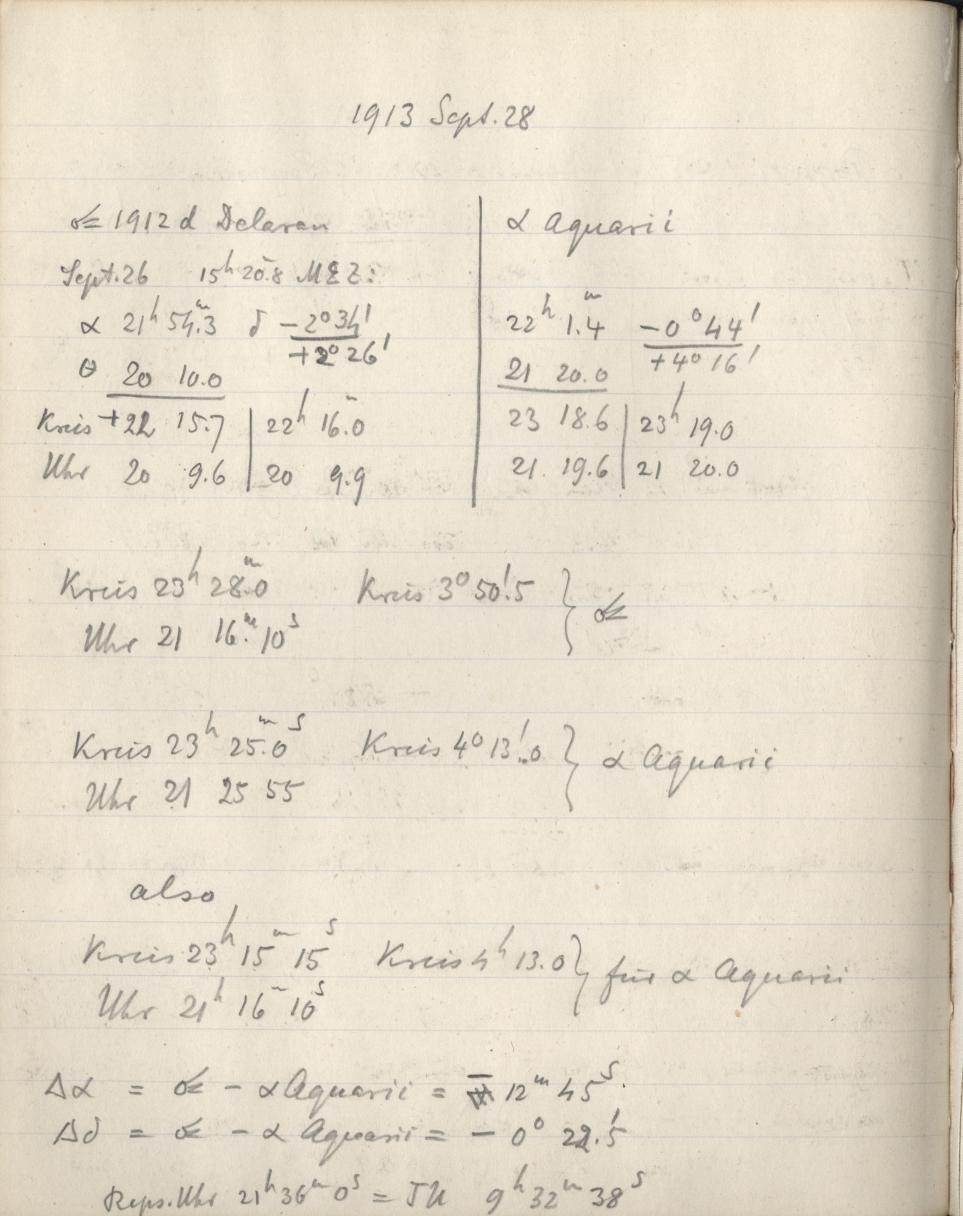 1913 Sept. 28
☄ 1912 d Delavan
Sept. 26 15h 20.8m MEZ:
α 21h 54.3m δ −2° 34'
+2° 26'
θ 20 10.0
Kreis +22 15.7 | 22h 16.0m
Uhr 20 9.6 | 20 9.9
α Aquarii
22h 1.4m −0° 44'
+4° 16'
21 20.0
23 18.6 | 23h 19.0
21. 19.6 | 21 20.0
Kreis 23h 28.0m Kreis 3° 50.'5 } ☄
Uhr 21 16m 10s
Kreis 23h 25.0m s Kreis 4° 13.'0 } α Aquarii
Uhr 21 25 55
also
Kreis 23h 15m 15s Kreis 4h 13.0 } für α Aquarii
Uhr 21h 16m 10s
Δα = ☄ − α Aquarii = − 12m 45s.
Δδ = ☄ − α Aquarii = − 0° 22.'5
Reps. Uhr 21h 36m 0s = JU 9h 32m 38s